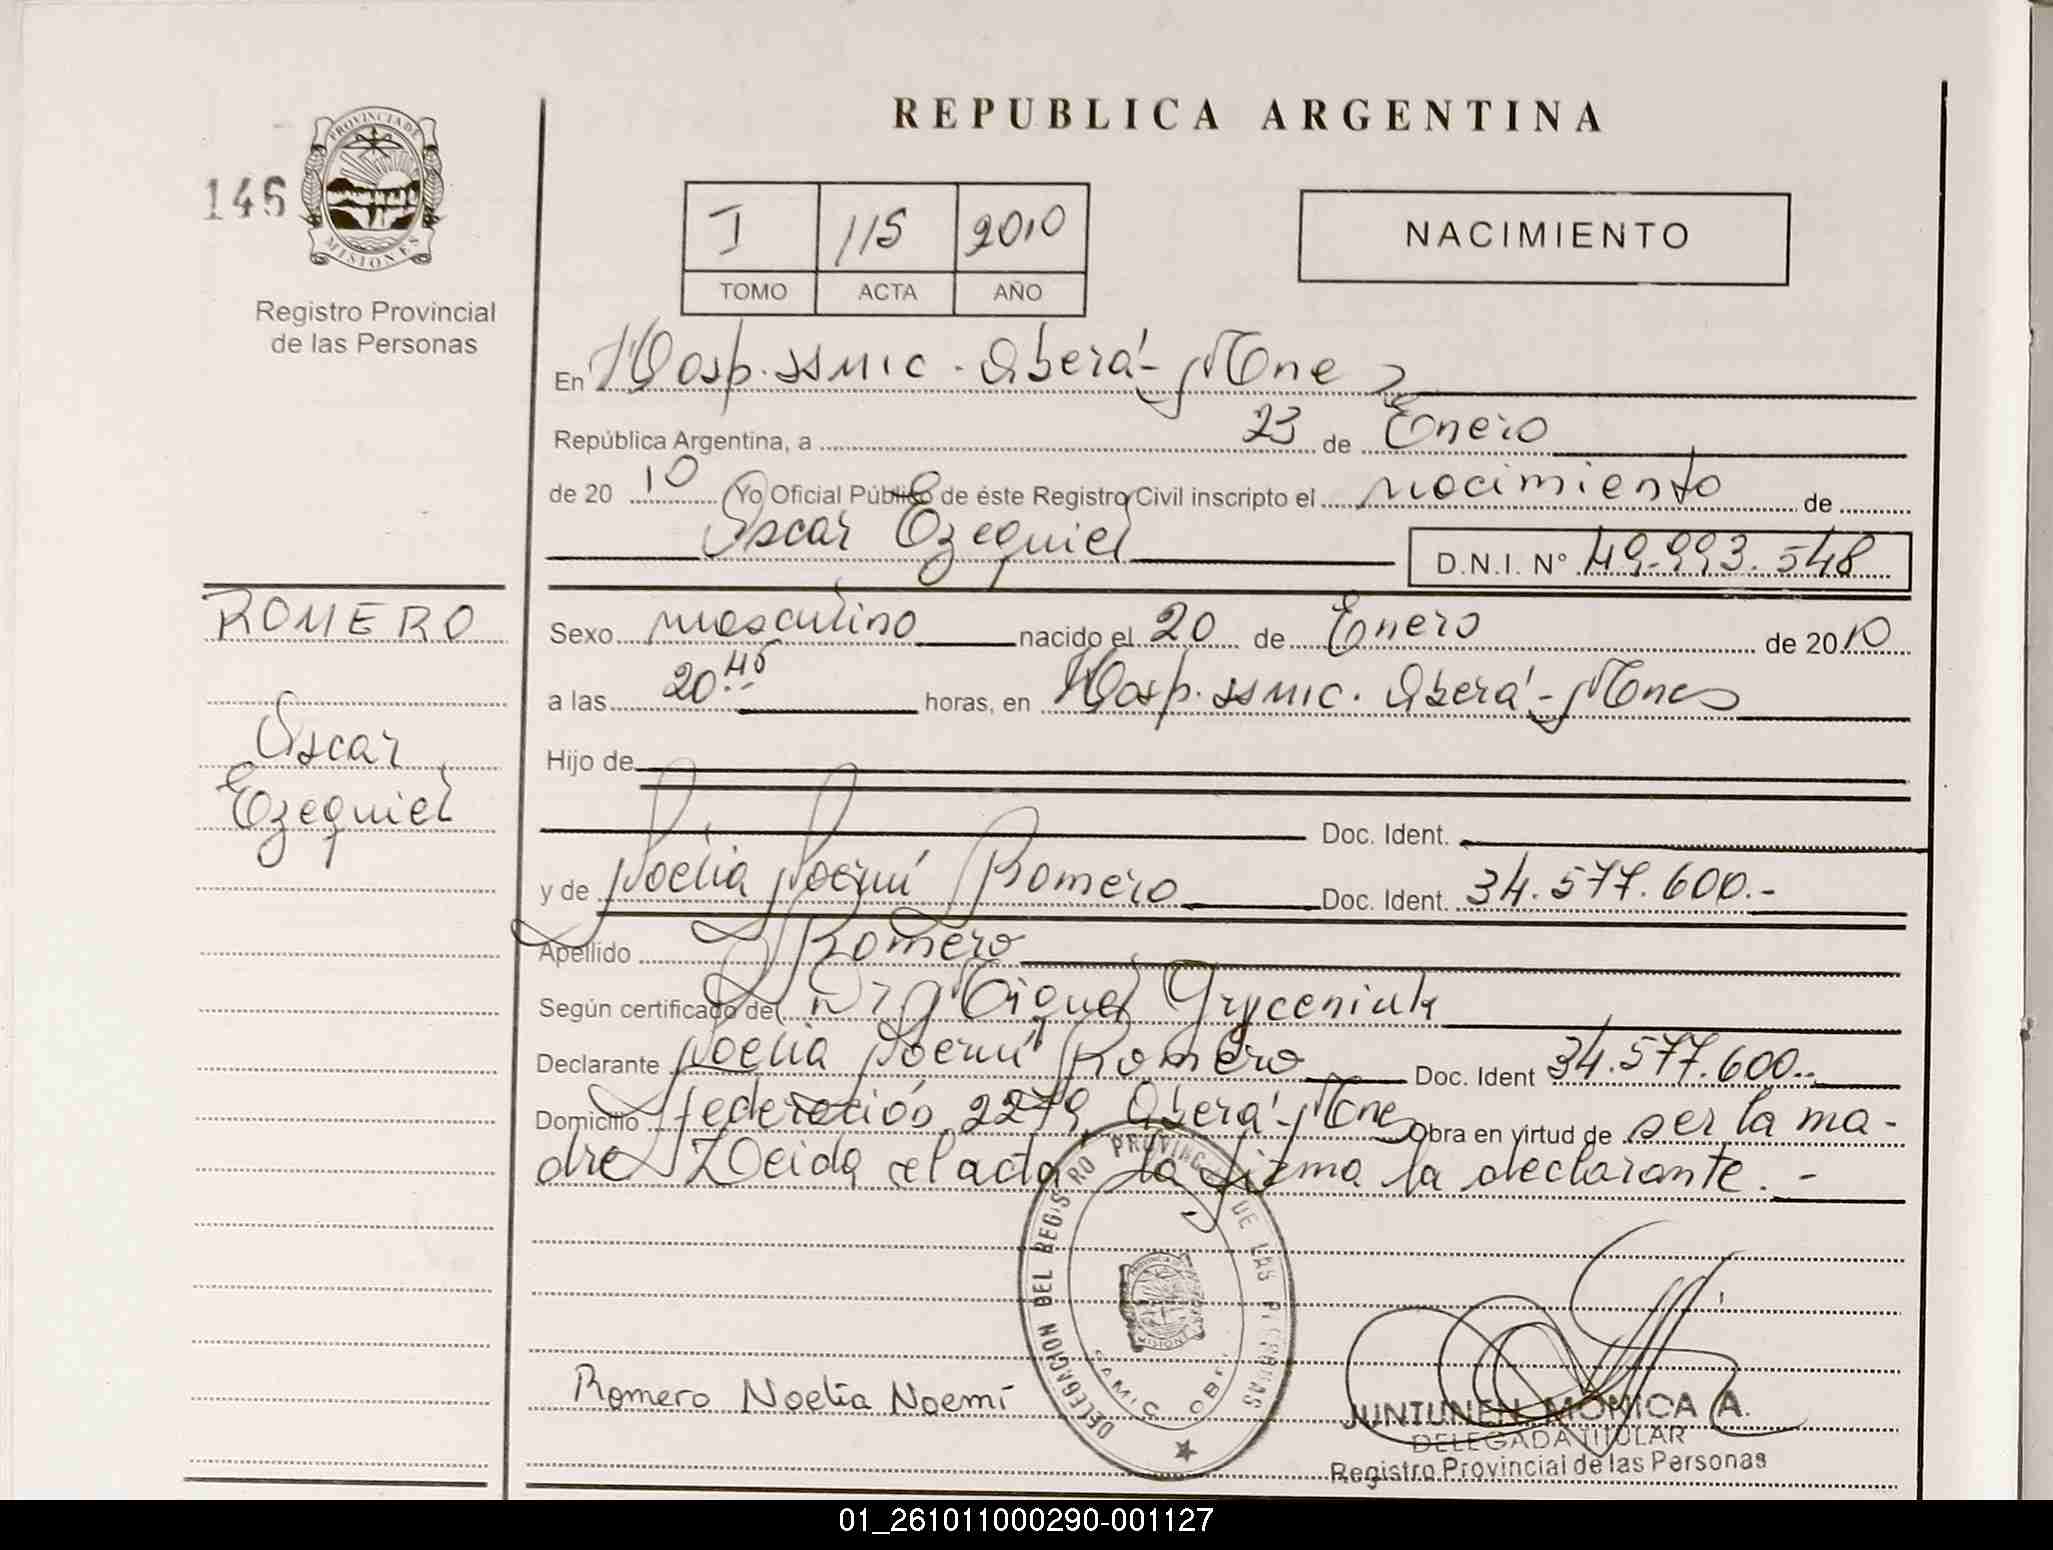 REPUBLICA ARGENTINA
146
PROVINCIA DE
MISIONES
Registro Provincial
de las Personas
I 115 2010
TOMO ACTA AÑO
NACIMIENTO
En Hosp. SSMIC. Oberá - Mnes
República Argentina, a 23 de Enero
de 20 10 Yo Oficial Público de éste Registro Civil inscripto el nacimiento de
Oscar Ezequiel D.N.I. Nº 49.993.548
ROMERO
Oscar
Ezequiel
Sexo masculino nacido el 20 de Enero de 2010
a las horas, en Hosp. SSMIC. Oberá - Mnes
Hijo de
Doc. Ident.
y de Noelia Noemí Romero Doc. Ident. 34.577.600.-
Apellido Romero
Según certificado de Dr Miguel Gryceniuk
Declarante Noelia Noemí Romero Doc. Ident 34.577.600.-
Domicilio Federación 2279, Oberá - Mnes Obra en virtud de ser la ma-
dre Leida el acta la firma la declarante. -
DELEGACION DEL REGISTRO PROVINCIAL DE LAS PERSONAS
Romero Noelia Noemí
JUNTUNEN MONICA A.
DELEGADA TITULAR
Registro Provincial de las Personas
01_261011000290-001127